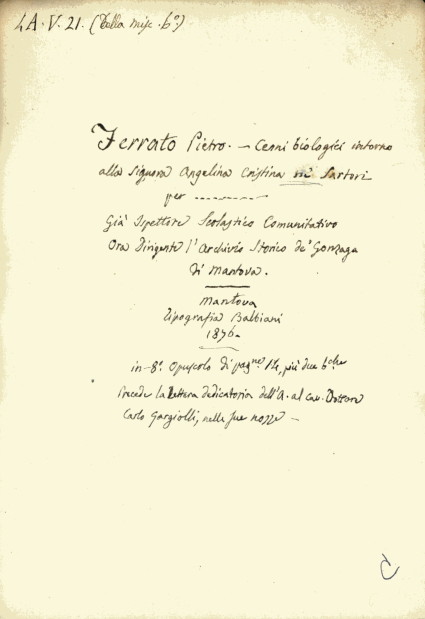 4A. V. 21. (Dalla misc. 6ª)
Ferrato Pietro. — Cenni biologici intorno
alla signora Angelina Cristina né Sartori
per ----------
Già Ispettore Scolastico Comunitativo
Ora Dirigente l'Archivio Storico de' Gonzaga
di Mantova.
Mantova
Tipografia Balbiani
1876.
in-8º. Opuscolo di pagne 14, più due bche
Precede la Lettera dedicatoria dell'A. al cav. Dottore
Carlo Gargiolli, nelle sue nozze —
C